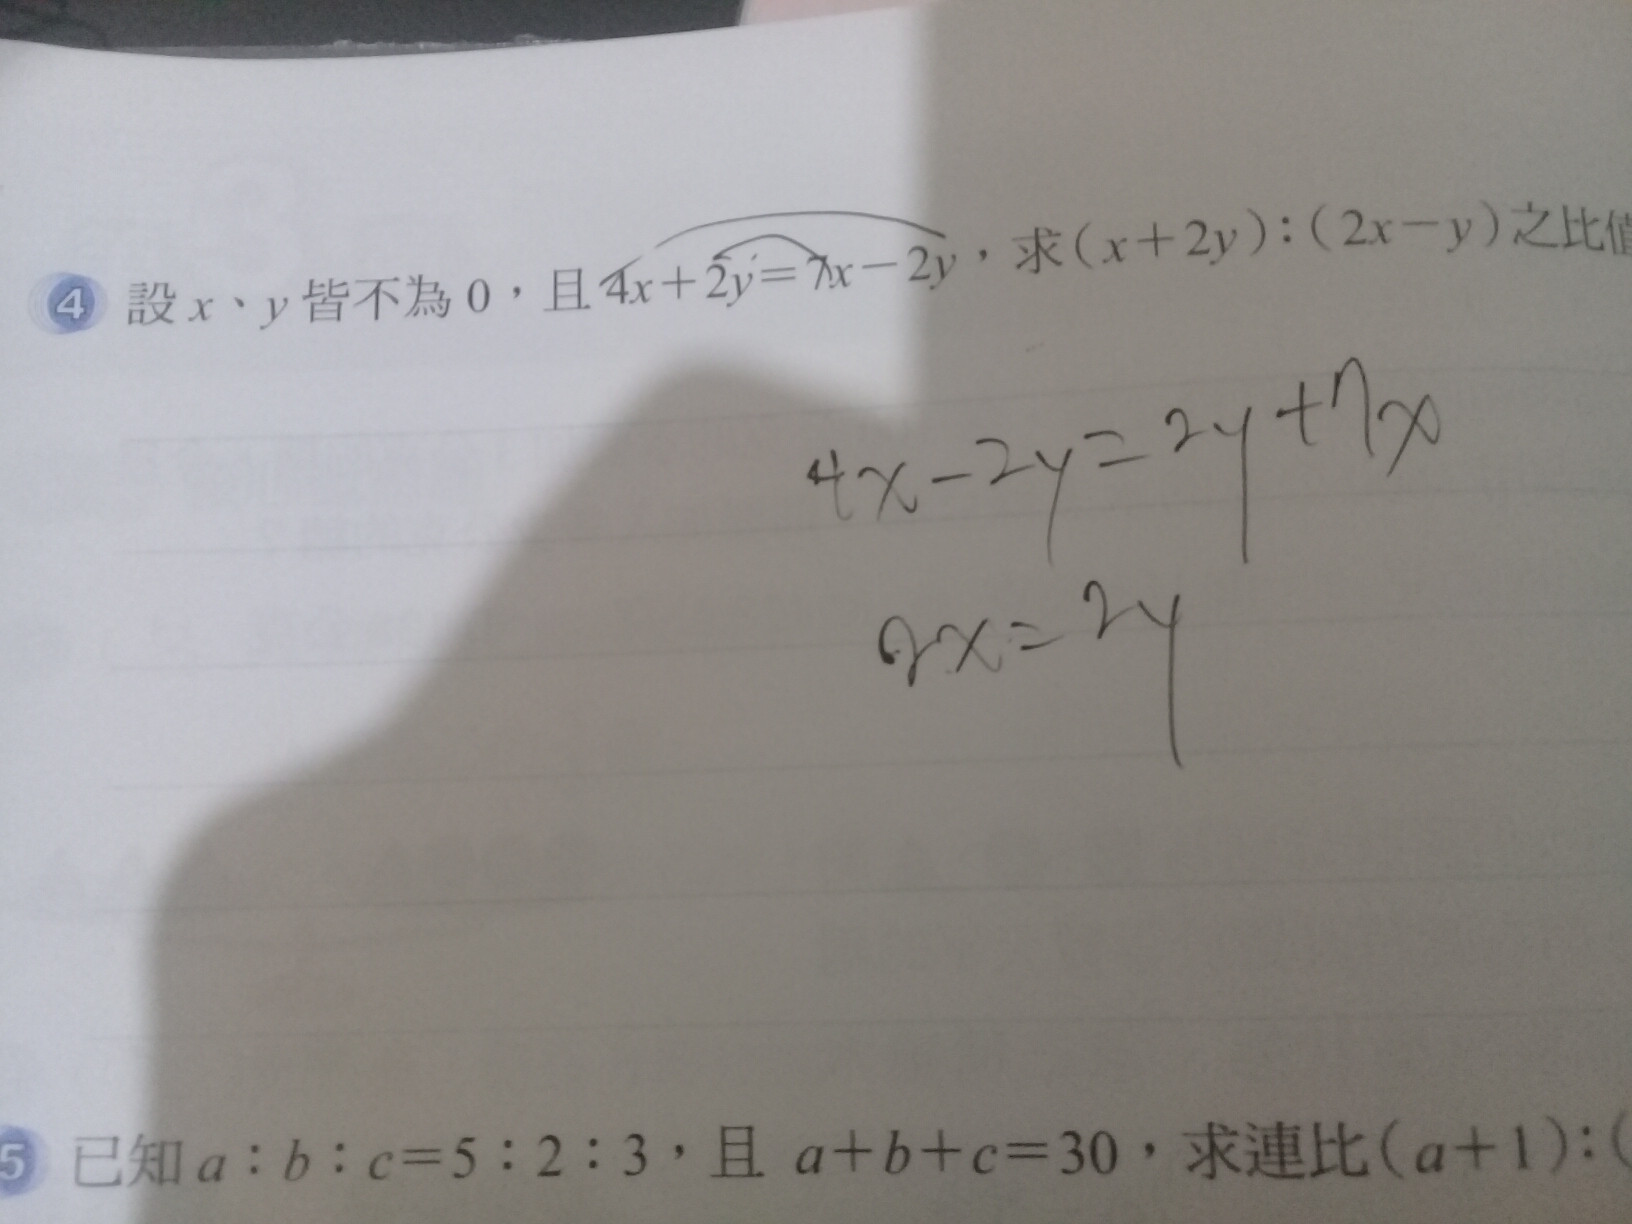 4 設 x、y 皆不為 0，且 4x+2y=7x-2y，求(x+2y):(2x-y)之比值
4x-2y=2y+7x
2x=2y
5 已知 a:b:c=5:2:3，且 a+b+c=30，求連比(a+1):(